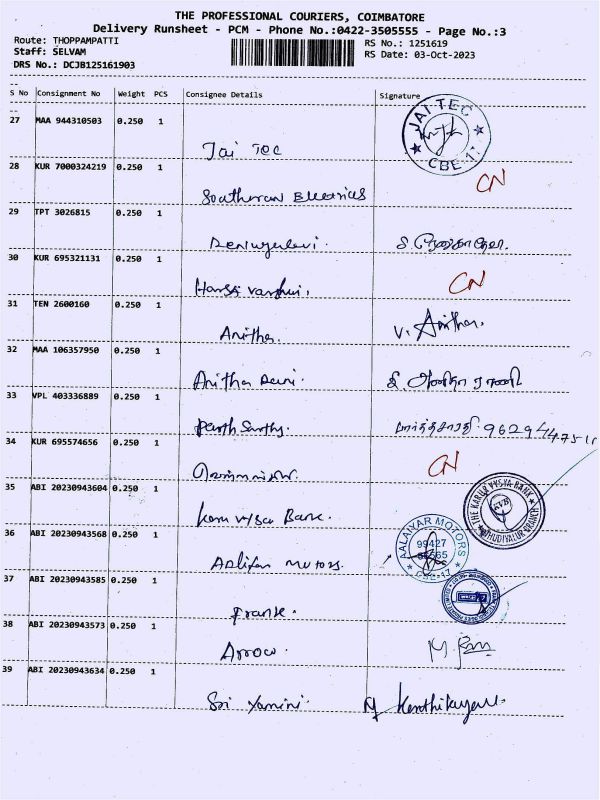 THE PROFESSIONAL COURIERS, COIMBATORE
Delivery Runsheet - PCM - Phone No.:0422-3505555 - Page No.:3
Route: THOPPAMPATTI RS No.: 1251619
Staff: SELVAM RS Date: 03-Oct-2023
DRS No.: DCJB125161903
S No Consignment No Weight PCS Consignee Details Signature
27 MAA 944310503 0.250 1
JAI TEC
CBE-17
Jai Tec
28 KUR 7000324219 0.250 1
CN
Southeran Electricals
29 TPT 3026815 0.250 1
30 KUR 695321131 0.250 1
CN
31 TEN 2600160 0.250 1
Anitha. V. Anitha.
32 MAA 106357950 0.250 1
Anitha Devi.
33 VPL 403336889 0.250 1
Parth Sarthy. பார்த்தசாரதி.
34 KUR 695574656 0.250 1
CN
35 ABI 20230943604 0.250 1
THE KARUR VYSYA BANK
KVB
Karur Vysya Bank.
36 ABI 20230943568 0.250 1
AALAIYAR MOTORS
99427
CBE-17
Motors.
37 ABI 20230943585 0.250 1
38 ABI 20230943573 0.250 1
Arrow.
39 ABI 20230943634 0.250 1
Sri Yamini.